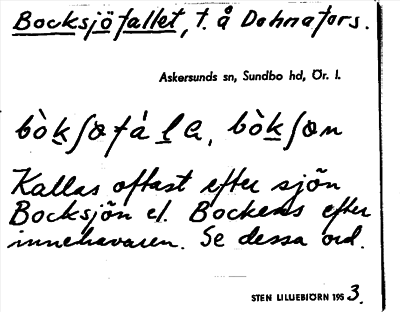 Bocksjöfallet, t. å Dohnafors.
Askersunds sn, Sundbo hd, Ör. l.
bòkʃøfálɑ, bòkʃøn
Kallas oftast efter sjön
Bocksjön el. Bockens efter
innehavaren. Se dessa ord.
STEN LILLIEBJÖRN 1953.